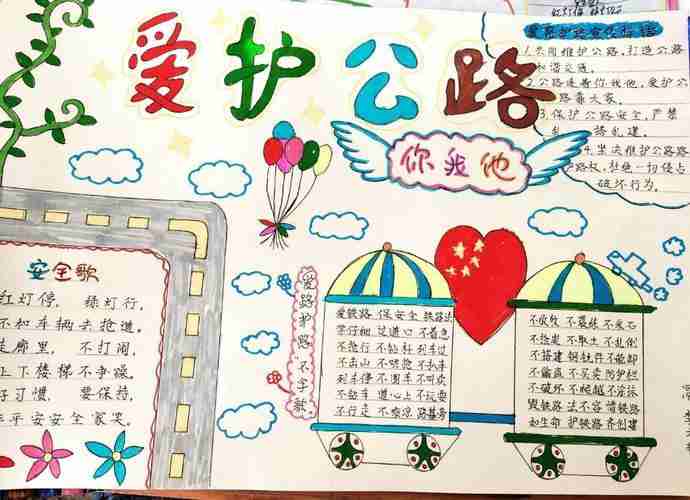 爱护公路
你我他
爱路护路宣传标语
1.共同维护公路,打造公路
和谐交通。
2.公路连着你我他,爱护公
路靠大家。
3.保护公路安全,严禁
乱搭乱建。
4.坚决维护公路路
产路权,杜绝一切侵占
破坏行为。
安全歌
红灯停, 绿灯行,
不和车辆去抢道。
走廊里, 不打闹,
上下楼梯不争躁。
好习惯, 要保持,
平平安安全家笑。
爱路护路,不字歌
爱铁路 保安全 铁路法
学仔细 过道口 不着急
不抢行 不钻杆 列车过
不击山 不哄抢 不扒车
列车停 不围车 不叫欢
不劫车 道心上 不玩耍
不行走 不乘凉 路基旁
不放牧 不葬坟 不采石
不挖炭 不取土 不乱倒
不搭建 钢轨件 不能卸
不偷盗 不买卖 防护栏
不破坏 不爬越 不涂抹
毁铁路 法不容 褚铁路
如生命 护铁路 齐创建